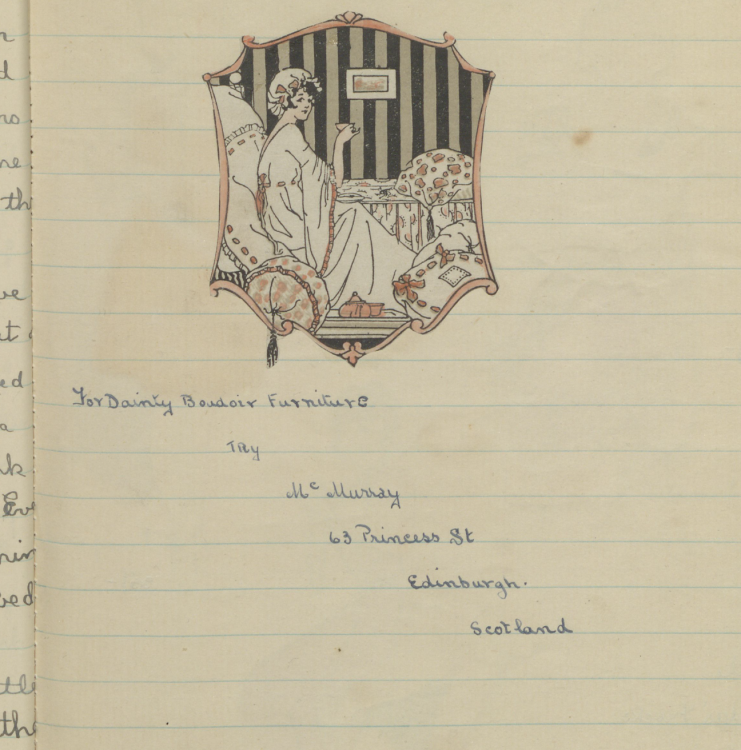 For Dainty Boudoir Furniture
Try
Mc Murray
63 Princess St
Edinburgh.
Scotland